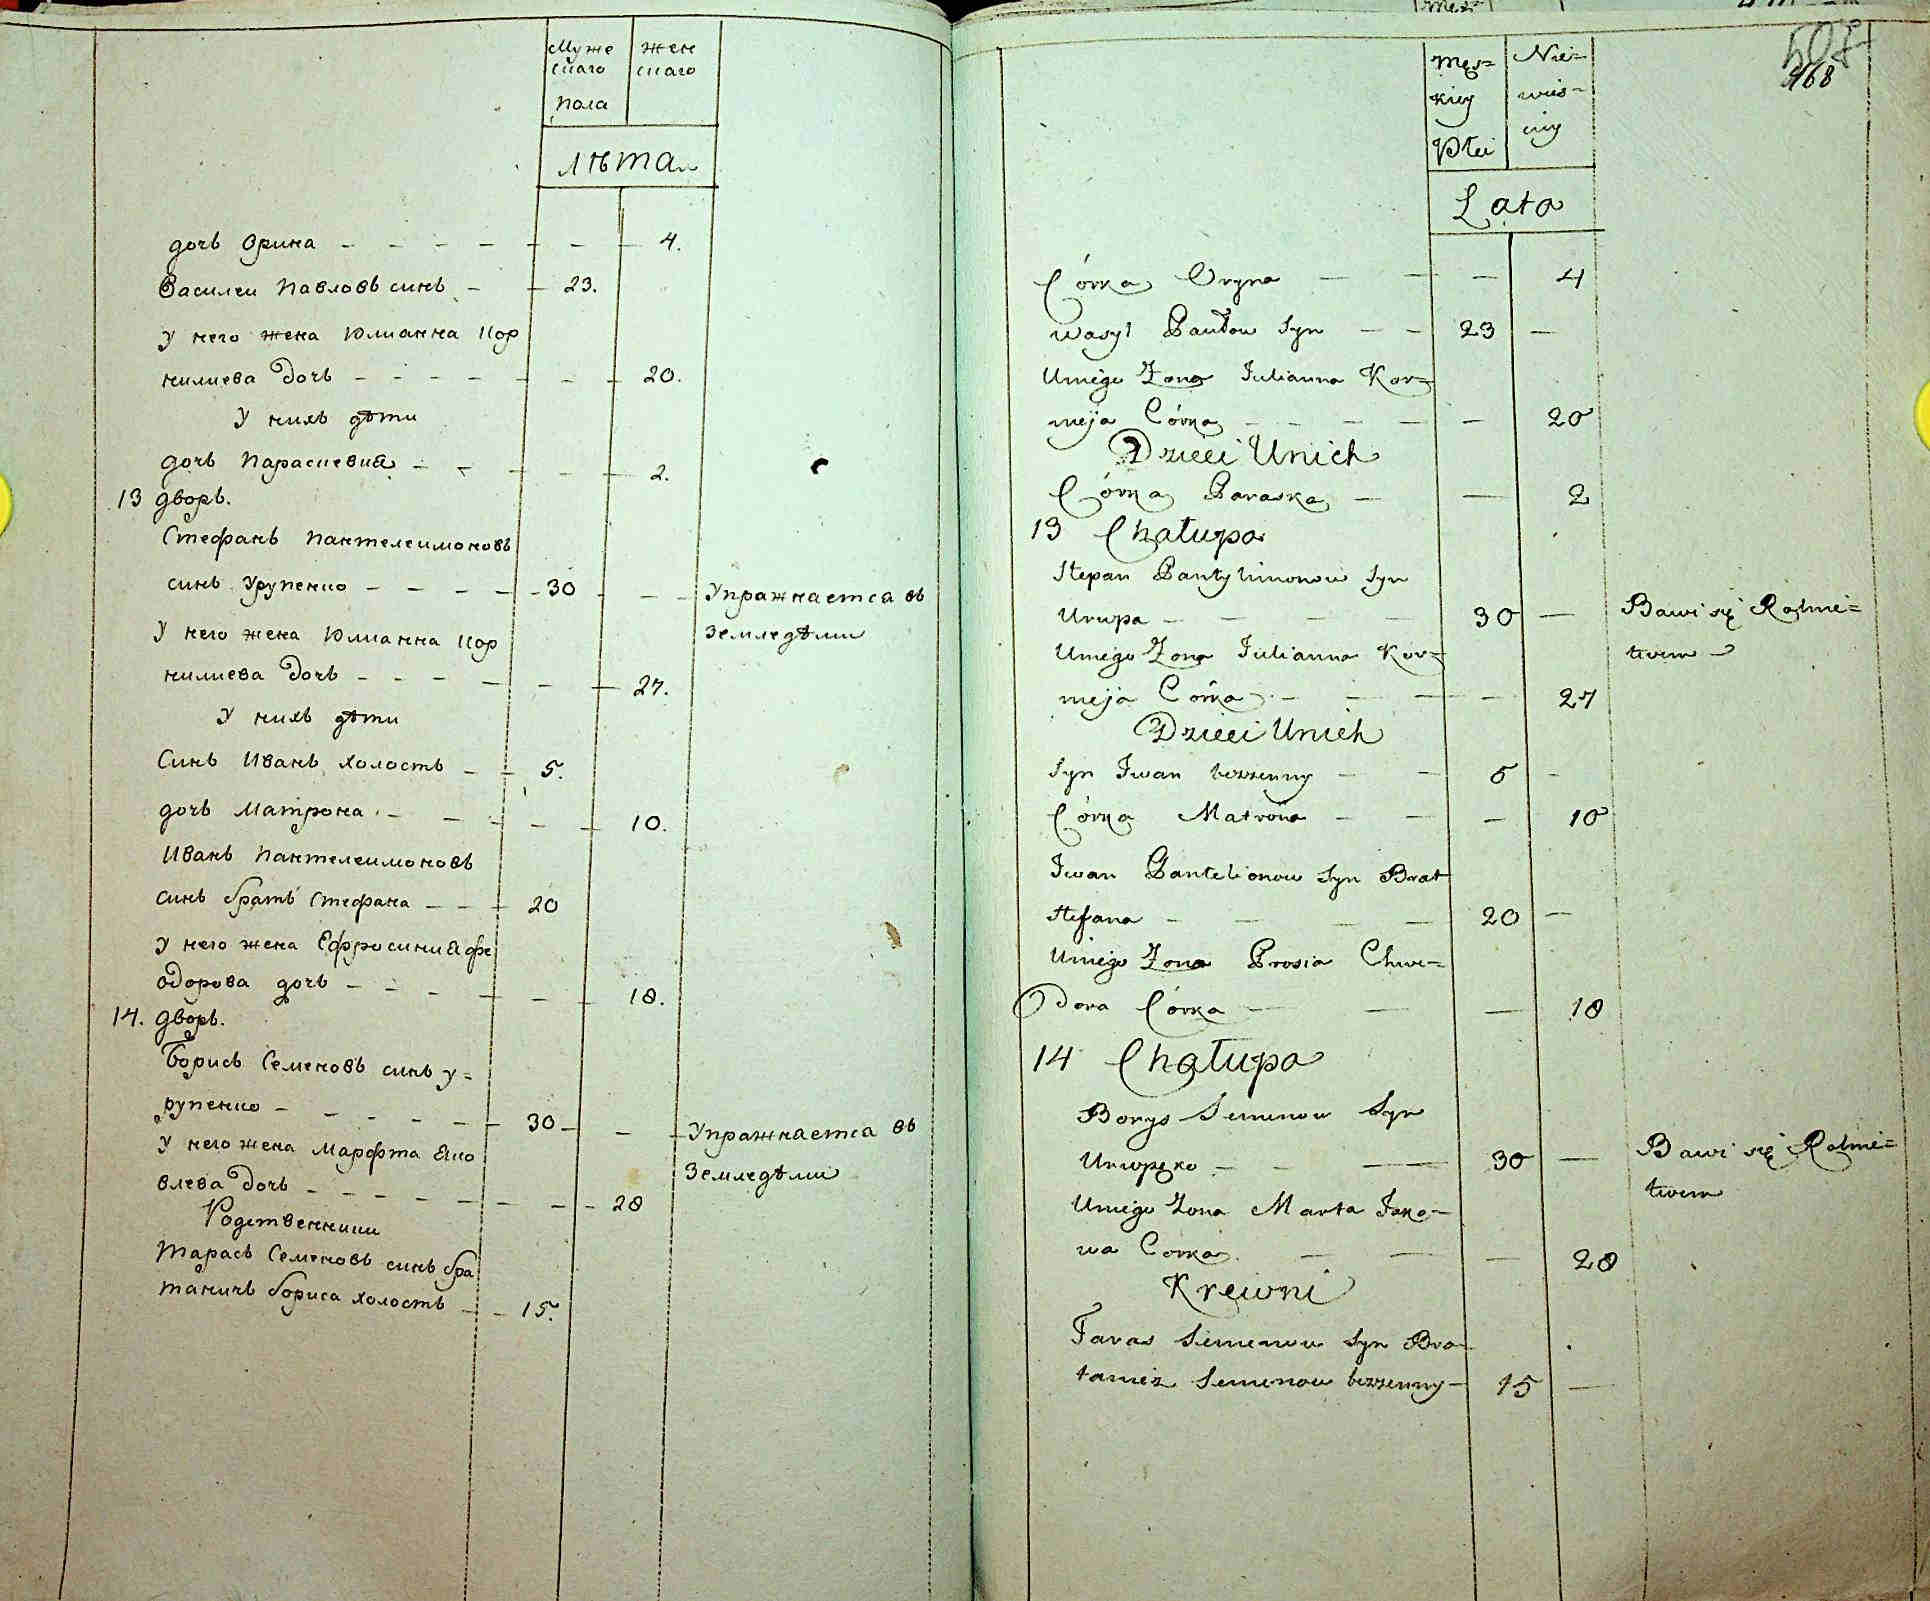 Муже
скаго
пола
жен
скаго
лѣта
дочь Орина 4.
Василеи Павловъ синъ 23.
У него жена Юлианна Кор
нилиева дочь 20.
У нихъ дѣти
дочь Параскевия 2.
13 дворъ.
Стефанъ Пантелеимоновъ
синъ Урупенко 30 Упражнаетса въ
земледѣли
У него жена Юлианна Кор
нилиева дочь 27.
У нихъ дѣти
Синъ Иванъ холостъ 5.
дочь Матрона 10.
Иванъ Пантелеимоновъ
синъ братъ Стефана 20
У него жена Ефросиниа фе
одорова дочь 18.
14. дворъ.
Борисъ Семеновъ синъ у-
рупенко 30 Упражнаетса въ
земледѣли
У него жена Марфта Яко
влева дочь 28
Родственники
Тарасъ Семеновъ синъ бра
таничъ Бориса холостъ 15.
Męs=
kiey
Płci
Nie=
wieś=
ciey
468
Lata
Córka Oryna 4
Wasyl Pawłow Syn 23
Uniego Żona Julianna Kor=
nieja Córka 20
Dzieci Unich
Córka Paraska 2
13 Chałupa
Stepan Pantylimonow Syn
Urupa 30 Bawi się Rolni=
twem
Uniego Żona Julianna Kor=
nieja Córka 27
Dzieci Unich
Syn Iwan bezzenny 5
Córka Matrona 10
Iwan Pantelionow Syn Brat
Stefana 20
Uniego Żona Prosia Chwe=
dora Córka 18
14 Chałupa
Borys Semenow Syn
Urupęko 30 Bawi się Rolni=
twem
Uniego Zona Marta Jako=
wa Corka 28
Krewni
Taras Semenow Syn Bra
taniez Semenow bezzenny 15